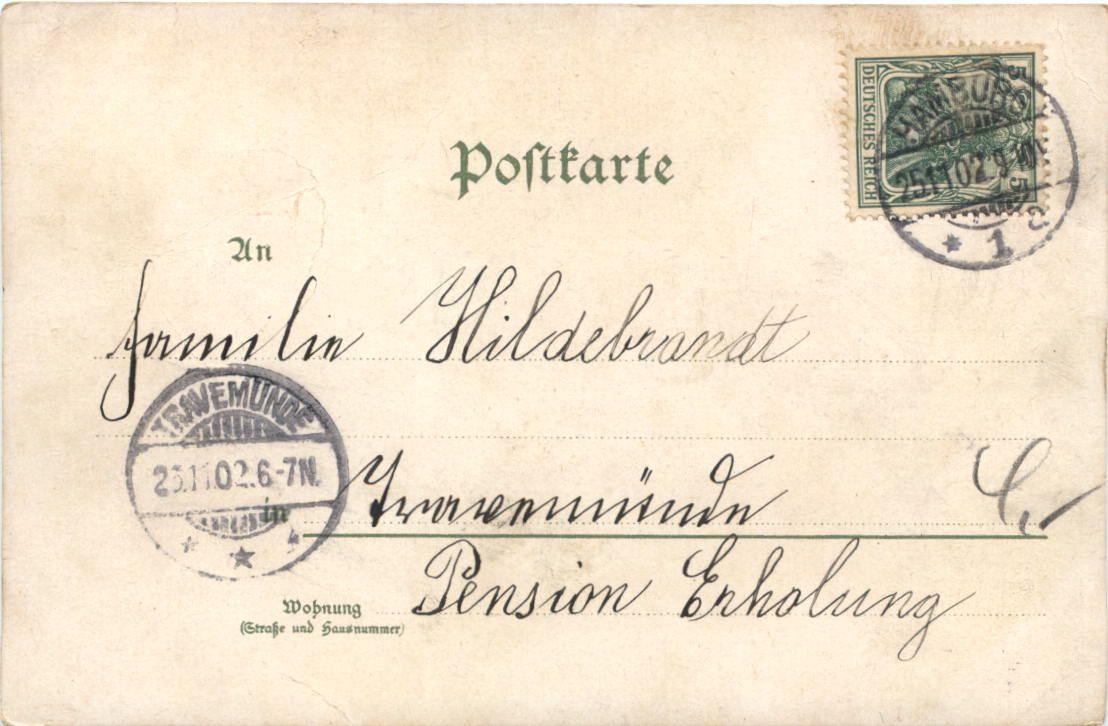 Postkarte
5
DEUTSCHES REICH
5
HAMBURG
25.11.02.9-10V.
* 1 c
An
Familie Hildebrandt
TRAVEMÜNDE
25.11.02.6-7N.
in Travemünde
Pension Erholung
Wohnung
(Straße und Hausnummer)